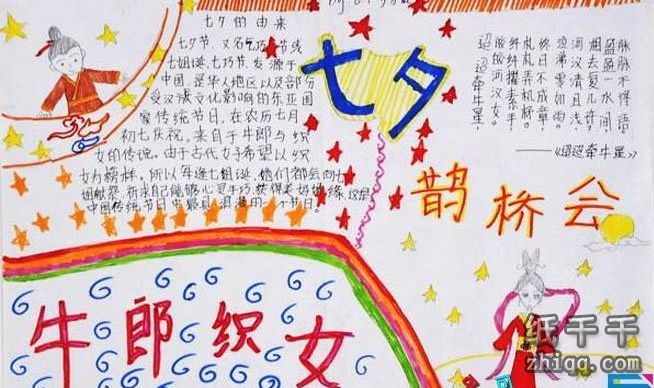 七夕的由来
七夕节,又名乞巧节或
七姐诞,七巧节,发源于
中国,是华人地区以及部分
受汉族文化影响的东亚国
家传统节日,在农历七月
初七庆祝,来自于牛郎与织
女的传说。由于古代女子希望以织
女为榜样,所以每逢七姐诞,她们都会向七
姐献祭,祈求自己能够心灵手巧,获得美好姻缘,这是
中国传统节日中最具浪漫的一个节日。
七夕
迢迢牵牛星,
皎皎河汉女。
纤纤擢素手,
札札弄机杼。
终日不成章,
泣涕零如雨。
河汉清且浅,
相去复几许。
盈盈一水间,
脉脉不得语
——《迢迢牵牛星》
鹊桥会
牛郎织女
纸千千
zhiqq.com